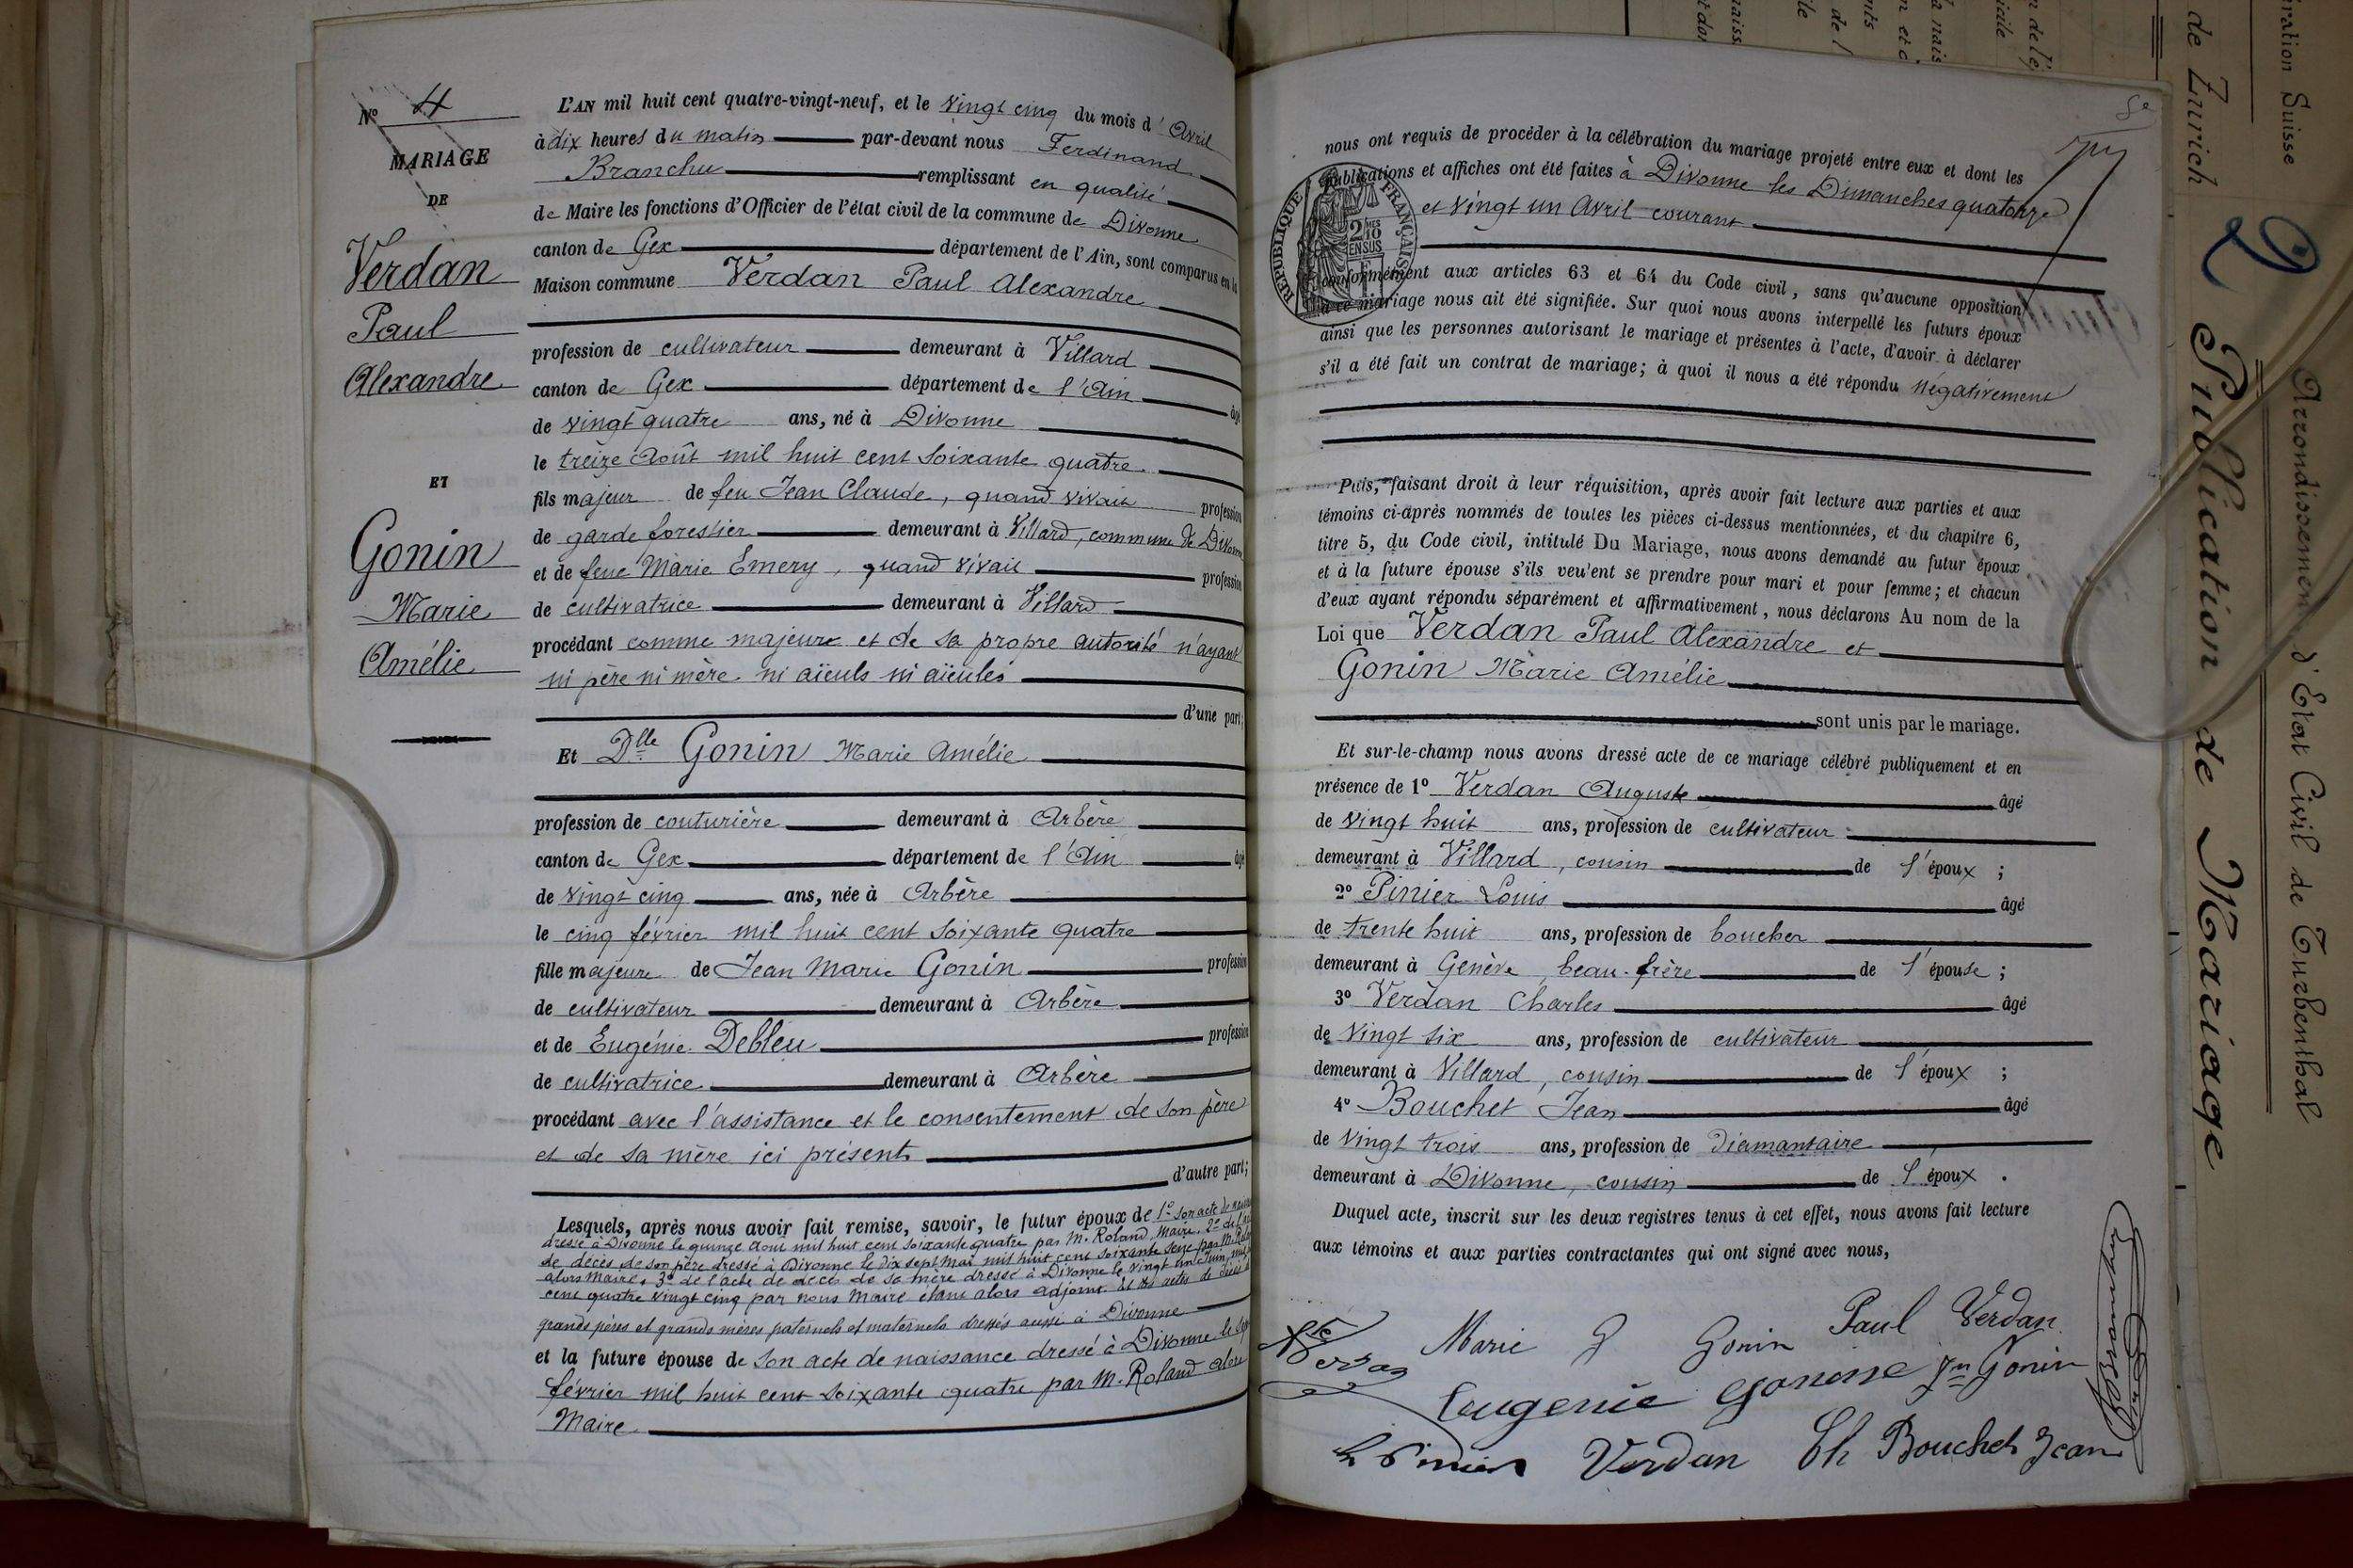 Nº 4
MARIAGE
DE
Verdan
Paul
Alexandre
ET
Gonin
Marie
Amélie
L'AN mil huit cent quatre-vingt-neuf, et le vingt cinq du mois d'Avril
à dix heures du matin par-devant nous Ferdinand
Branchu remplissant en qualité
de Maire les fonctions d'Officier de l'état civil de la commune de Divonne
canton de Gex département de l'Ain, sont comparus en la
Maison commune Verdan Paul Alexandre
profession de cultivateur demeurant à Villard
canton de Gex département de l'Ain âgé
de vingt quatre ans, né à Divonne
le treize Août mil huit cent soixante quatre
fils majeur de feu Jean Claude, quand vivait profession
de garde forestier demeurant à Villard, commune de Divonne
et de feue Marie Emery, quand vivait profession
de cultivatrice demeurant à Villard
procédant comme majeure et de sa propre autorité n'ayant
ni père ni mère ni aïeuls ni aïeules
d'une part;
Et Dlle Gonin Marie Amélie
profession de couturière demeurant à Arbère
canton de Gex département de l'Ain âgé
de vingt cinq ans, née à Arbère
le cinq février mil huit cent soixante quatre
fille majeure de Jean Marie Gonin profession
de cultivateur demeurant à Arbère
et de Eugénie Debleu profession
de cultivatrice demeurant à Arbère
procédant avec l'assistance et le consentement de son père
et de sa mère ici présents
d'autre part;
Lesquels, après nous avoir fait remise, savoir, le futur époux de 1º son acte de
dressé à Divonne le quinze Août mil huit cent soixante quatre par M. Roland, Maire. 2º de
de décès de son père dressé à Divonne le dix sept Mai mil huit cent soixante seize par M.
alors Maire, 3º de l'acte de décès de sa mère dressé à Divonne le vingt un Juin mil
cent quatre vingt cinq par nous Maire étant alors adjoint. Et des actes de décès
grands pères et grands mères paternels et maternels dressés aussi à Divonne
et la future épouse de son acte de naissance dressé à Divonne le sept
février mil huit cent soixante quatre par M. Roland alors
Maire
nous ont requis de procéder à la célébration du mariage projeté entre eux et dont les
publications et affiches ont été faites à Divonne les Dimanches quatorze
et vingt un Avril courant
RÉPUBLIQUE FRANÇAISE
2 MES
10
EN SUS
conformément aux articles 63 et 64 du Code civil, sans qu'aucune opposition
à ce mariage nous ait été signifiée. Sur quoi nous avons interpellé les futurs époux
ainsi que les personnes autorisant le mariage et présentes à l'acte, d'avoir à déclarer
s'il a été fait un contrat de mariage; à quoi il nous a été répondu négativement
Puis, faisant droit à leur réquisition, après avoir fait lecture aux parties et aux
témoins ci-après nommés de toutes les pièces ci-dessus mentionnées, et du chapitre 6,
titre 5, du Code civil, intitulé Du Mariage, nous avons demandé au futur époux
et à la future épouse s'ils veu'ent se prendre pour mari et pour femme; et chacun
d'eux ayant répondu séparément et affirmativement, nous déclarons Au nom de la
Loi que Verdan Paul Alexandre et
Gonin Marie Amélie
sont unis par le mariage.
Et sur-le-champ nous avons dressé acte de ce mariage célébré publiquement et en
présence de 1º Verdan Auguste âgé
de vingt huit ans, profession de cultivateur
demeurant à Villard, cousin de l'époux ;
2º Pinier Louis âgé
de trente huit ans, profession de boucher
demeurant à Genève, beau-frère de l'épouse ;
3º Verdan Charles âgé
de vingt six ans, profession de cultivateur
demeurant à Villard, cousin de l'époux ;
4º Bouchet Jean âgé
de vingt trois ans, profession de diamantaire
demeurant à Divonne, cousin de l'époux .
Duquel acte, inscrit sur les deux registres tenus à cet effet, nous avons fait lecture
aux témoins et aux parties contractantes qui ont signé avec nous,
Marie Gonin Paul Verdan
Verdan
Eugenie Jn Gonin
L Pinier Verdan Ch Bouchet Jean
de Zurich
2 Publication de Mariage
Arrondissement d'Etat Civil de Turbenthal
Suisse